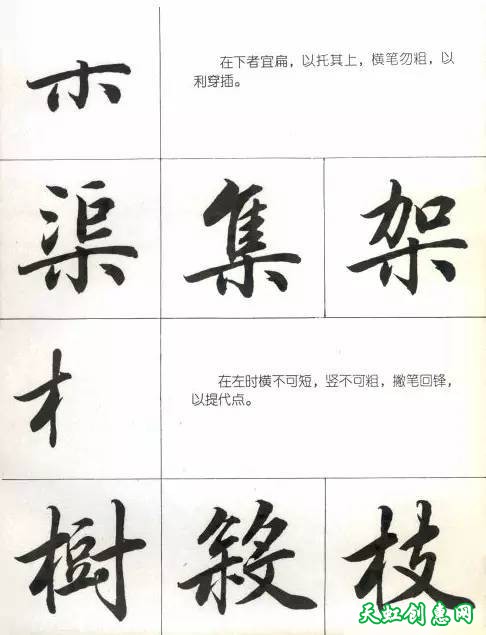 在下者宜扁，以托其上，横笔勿粗，以
利穿插。
渠 集 架
在左时横不可短，竖不可粗，撇笔回锋，
以提代点。
樹 枝
天虹创惠网